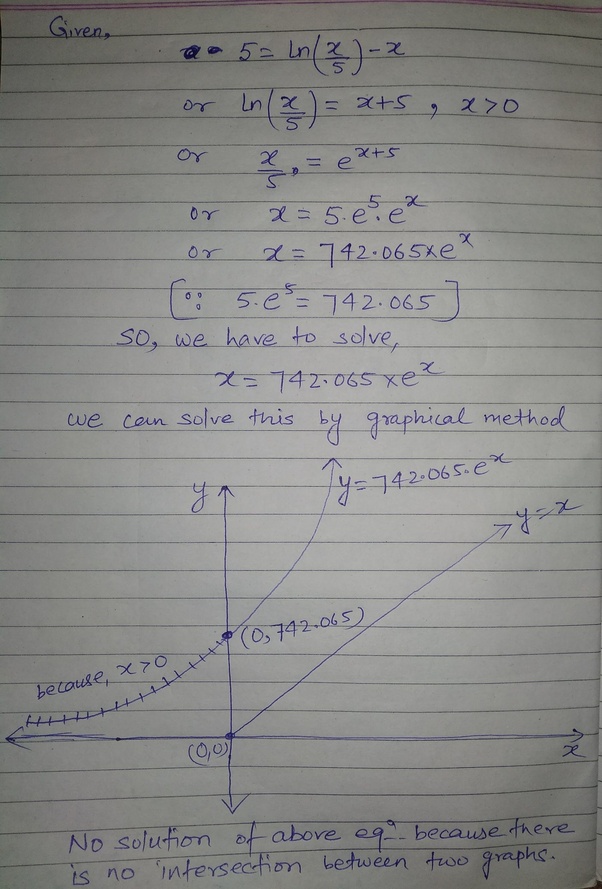 Given,
5 = ln(x/5) - x
or ln(x/5) = x+5 , x>0
or x/5 = e^(x+5)
or x = 5.e^5.e^x
or x = 742.065×e^x
[∵ 5.e^5 = 742.065]
SO, we have to solve,
x = 742.065 ×e^x
we can solve this by graphical method
y
y=742.065.e^x
y=x
(0,742.065)
because, x>0
(0,0)
x
No solution of above eqⁿ. because there
is no intersection between two graphs.